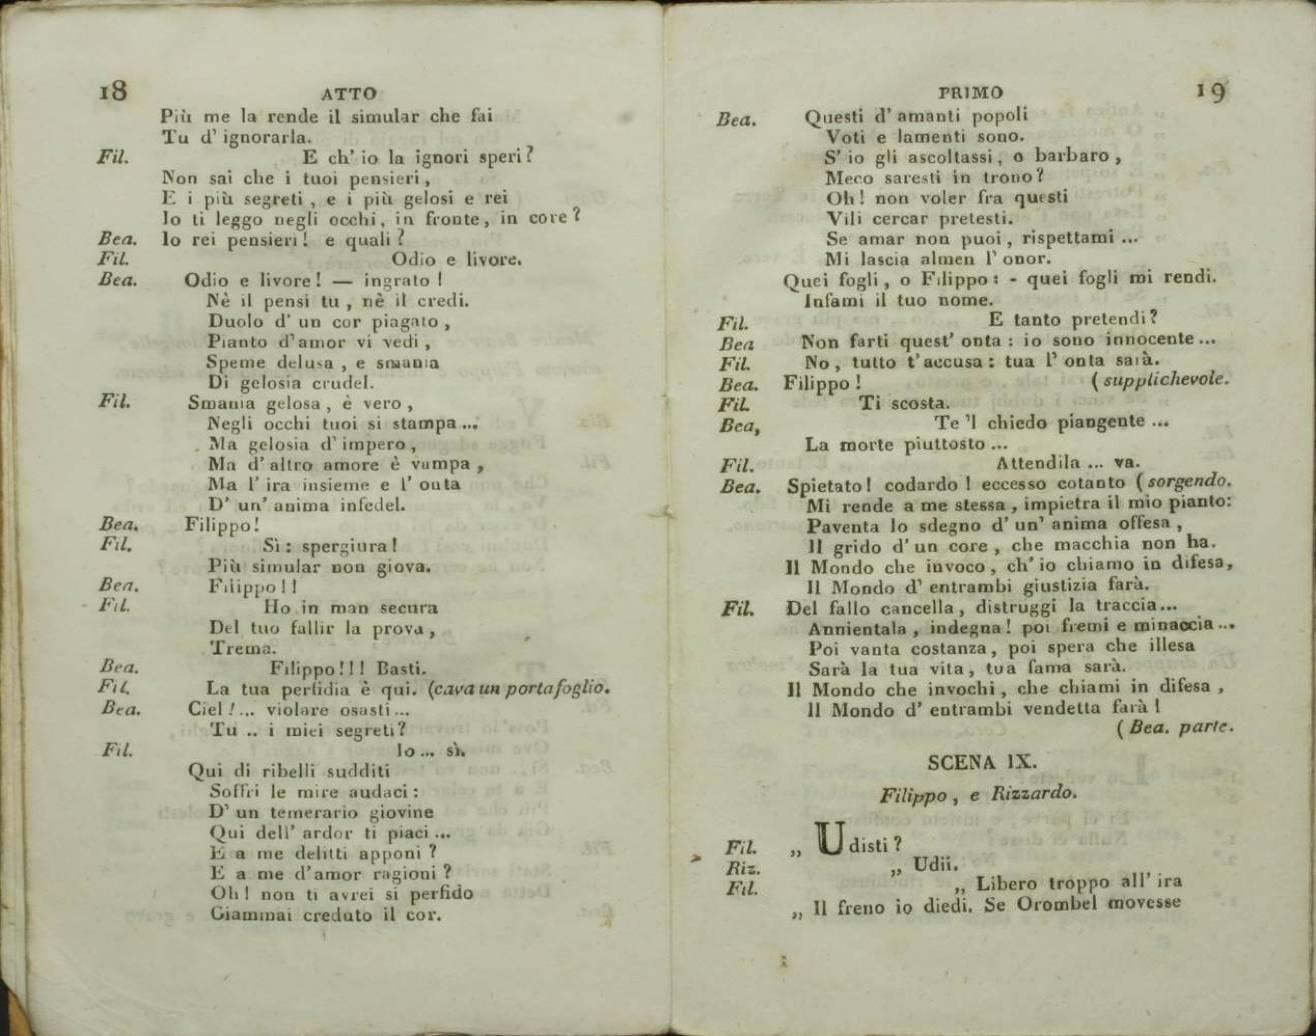 18
ATTO
Più me la rende il simular che fai
Tu d' ignorarla.
Fil. E ch' io la ignori speri?
Non sai che i tuoi pensieri,
E i più segreti, e i più gelosi e rei
Io ti leggo negli occhi, in fronte, in core?
Bea. Io rei pensieri! e quali?
Fil. Odio e livore.
Bea. Odio e livore! — ingrato!
Nè il pensi tu, nè il credi.
Duolo d' un cor piagato,
Pianto d'amor vi vedi,
Speme delusa, e smania
Di gelosia crudel.
Fil. Smania gelosa, è vero,
Negli occhi tuoi si stampa...
Ma gelosia d'impero,
Ma d' altro amore è vampa,
Ma l' ira insieme e l' onta
D' un' anima infedel.
Bea. Filippo!
Fil. Sì: spergiura!
Più simular non giova.
Bea. Filippo!!
Fil. Ho in man secura
Del tuo fallir la prova,
Trema.
Bea. Filippo!!! Basti.
Fil. La tua perfidia è qui. (cava un portafoglio.
Bea. Ciel!... violare osasti...
Tu .. i miei segreti?
Fil. Io... sì.
Qui di ribelli sudditi
Soffri le mire audaci:
D' un temerario giovine
Qui dell' ardor ti piaci...
E a me delitti apponi?
E a me d'amor ragioni?
Oh! non ti avrei si perfido
Giammai creduto il cor.
PRIMO
19
Bea. Questi d' amanti popoli
Voti e lamenti sono.
S' io gli ascoltassi, o barbaro,
Meco saresti in trono?
Oh! non voler fra questi
Vili cercar pretesti.
Se amar non puoi, rispettami ...
Mi lascia almen l' onor.
Quei fogli, o Filippo: - quei fogli mi rendi.
Infami il tuo nome.
Fil. E tanto pretendi?
Bea Non farti quest' onta: io sono innocente...
Fil. No, tutto t'accusa: tua l' onta sarà.
Bea. Filippo! (supplichevole.
Fil. Ti scosta.
Bea, Te 'l chiedo piangente ...
La morte piuttosto ...
Fil. Attendila ... va.
Bea. Spietato! codardo! eccesso cotanto (sorgendo.
Mi rende a me stessa, impietra il mio pianto:
Paventa lo sdegno d' un' anima offesa,
Il grido d' un core, che macchia non ha.
Il Mondo che invoco, ch' io chiamo in difesa,
Il Mondo d' entrambi giustizia farà.
Fil. Del fallo cancella, distruggi la traccia...
Annientala, indegna! poi fremi e minaccia...
Poi vanta costanza, poi spera che illesa
Sarà la tua vita, tua fama sarà.
Il Mondo che invochi, che chiami in difesa,
Il Mondo d' entrambi vendetta farà!
(Bea. parte.
SCENA IX.
Filippo, e Rizzardo.
Fil. „ Udisti?
Riz. „ Udii.
Fil. „ Libero troppo all' ira
„ Il freno io diedi. Se Orombel movesse